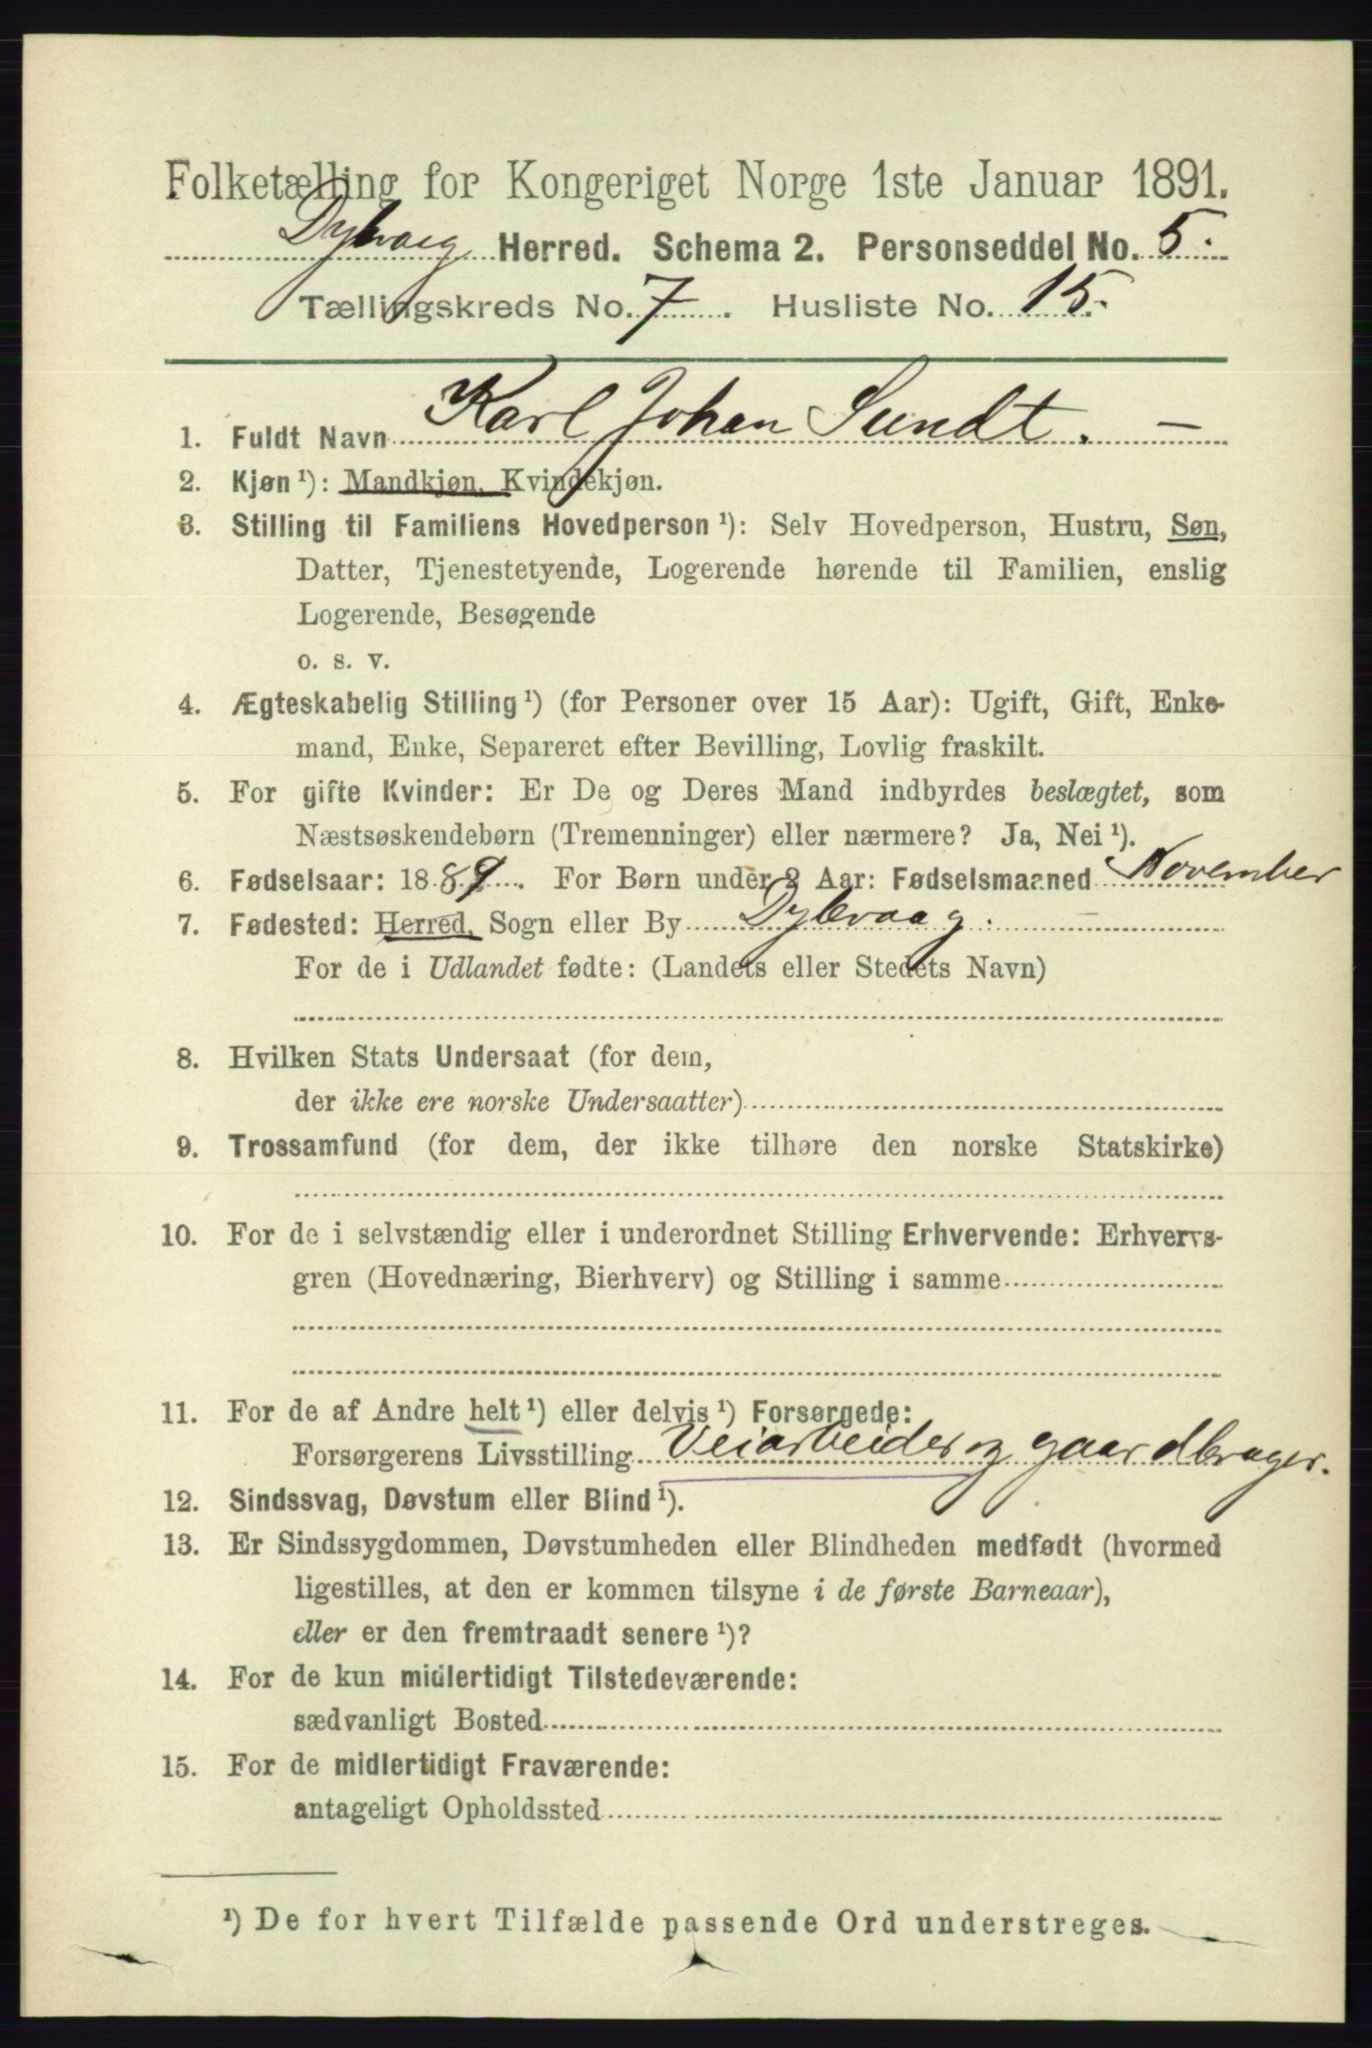 Folketælling for Kongeriget Norge 1ste Januar 1891.
Dybvaag Herred. Schema 2. Personseddel No. 5.
Tællingskreds No. 7. Husliste No. 15.
1. Fuldt Navn Karl Johan Sundt. —
2. Kjøn ¹): Mandkjøn, Kvindekjøn.
3. Stilling til Familiens Hovedperson ¹): Selv Hovedperson, Hustru, Søn,
Datter, Tjenestetyende, Logerende hørende til Familien, enslig
Logerende, Besøgende
o. s. v.
4. Ægteskabelig Stilling ¹) (for Personer over 15 Aar): Ugift, Gift, Enke-
mand, Enke, Separeret efter Bevilling, Lovlig fraskilt.
5. For gifte Kvinder: Er De og Deres Mand indbyrdes beslægtet, som
Næstsøskendebørn (Tremenninger) eller nærmere? Ja, Nei ¹).
6. Fødselsaar: 1889. For Børn under 2 Aar: Fødselsmaaned November
7. Fødested: Herred, Sogn eller By Dybvaag.
For de i Udlandet fødte: (Landets eller Stedets Navn)
8. Hvilken Stats Undersaat (for dem,
der ikke ere norske Undersaatter)
9. Trossamfund (for dem, der ikke tilhøre den norske Statskirke)
10. For de i selvstændig eller i underordnet Stilling Erhvervende: Erhvervs-
gren (Hovednæring, Bierhverv) og Stilling i samme
11. For de af Andre helt ¹) eller delvis ¹) Forsørgede:
Forsørgerens Livsstilling Veiarbeider og gaardbruger.
12. Sindssvag, Døvstum eller Blind ¹).
13. Er Sindssygdommen, Døvstumheden eller Blindheden medfødt (hvormed
ligestilles, at den er kommen tilsyne i de første Barneaar),
eller er den fremtraadt senere ¹)?
14. For de kun midlertidigt Tilstedeværende:
sædvanligt Bosted
15. For de midlertidigt Fraværende:
antageligt Opholdssted
¹) De for hvert Tilfælde passende Ord understreges.